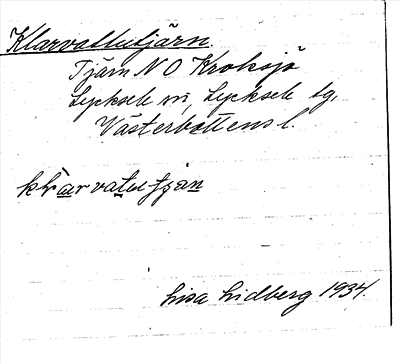 Klarvattutjärn.
Tjärn N O Kroksjö
Lycksele sn, Lycksele lg,
Västerbottens l.
Lisa Lidberg 1934.